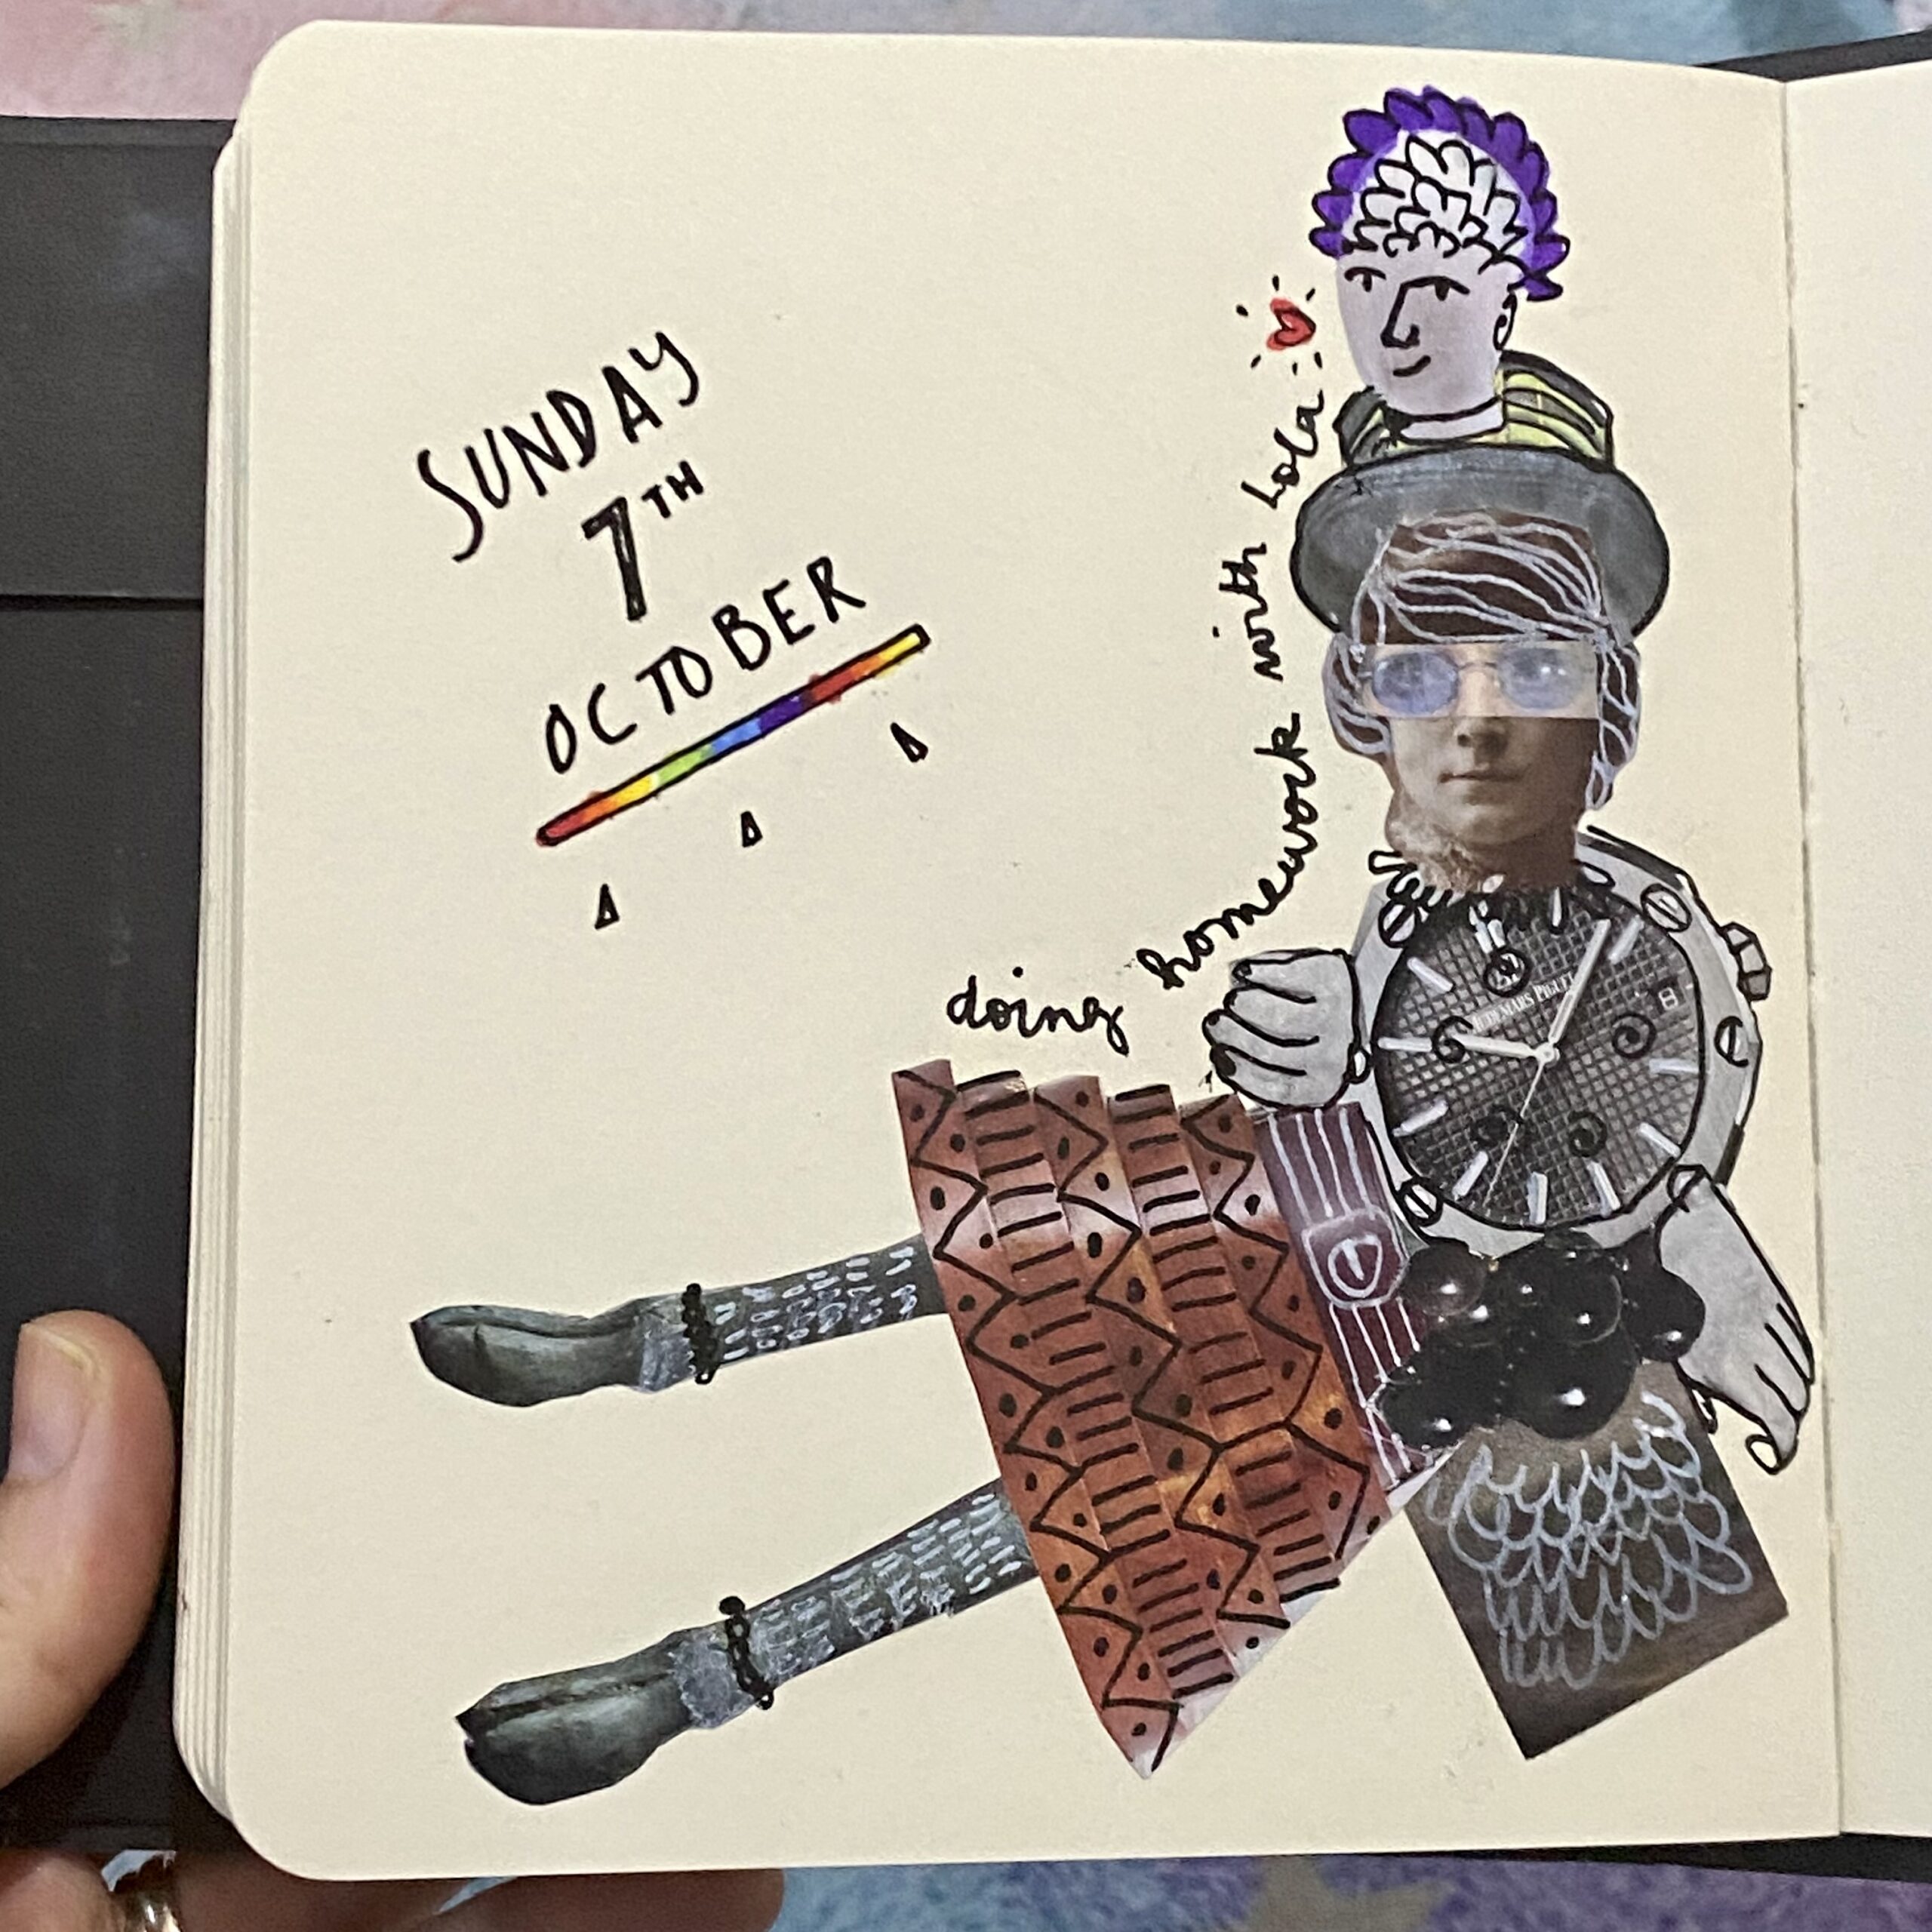 SUNDAY
7TH
OCTOBER
doing homework with Lola
AUDEMARS PIGUET
8